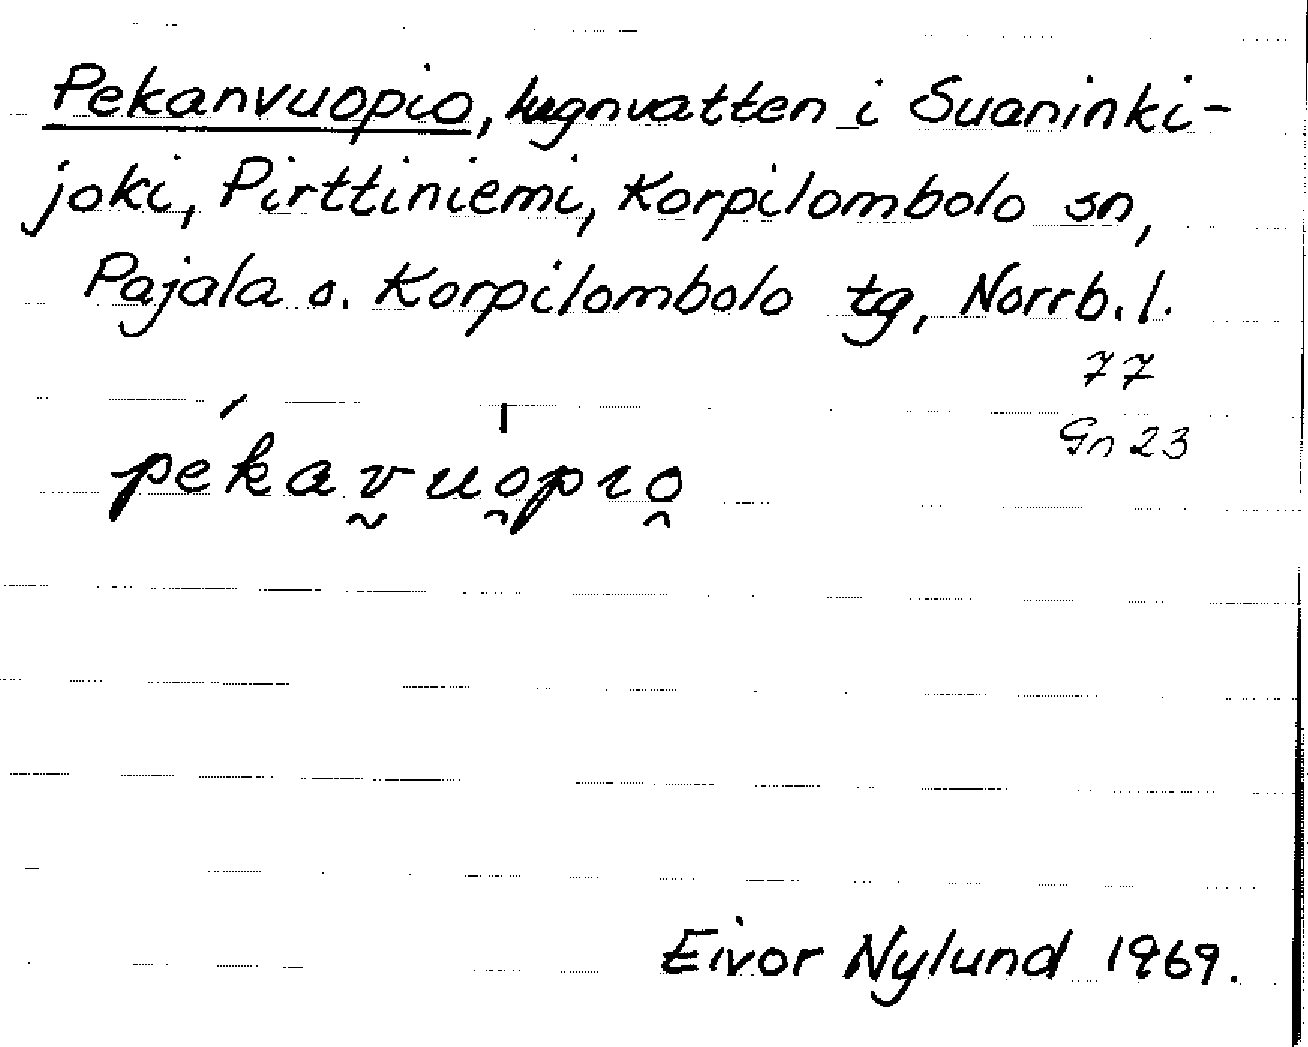 Pekanvuopio, lugnvatten i Suaninki-
joki, Pirttiniemi, Korpilombolo sn,
Pajala o. Korpilombolo tg, Norrb. l.
77
Gn 23
pékav̰uo̯̍pıo̯
Eivor Nylund 1969.